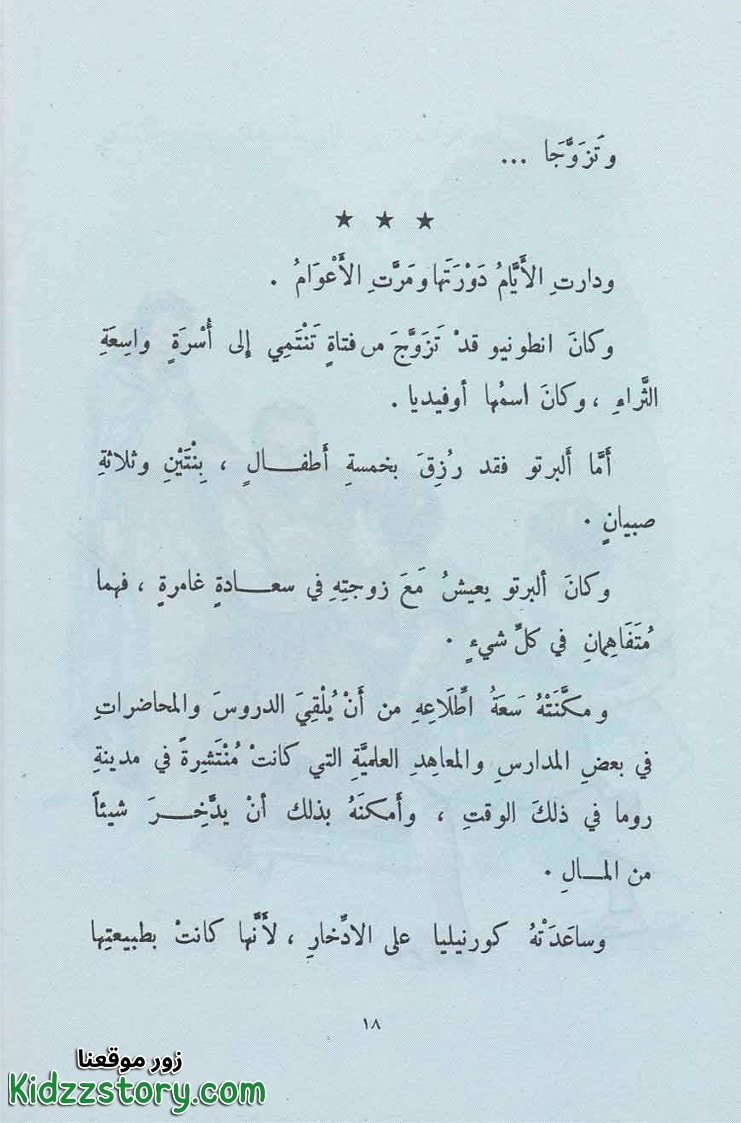 وتَزَوَّجَا ...
★ ★ ★
ودارتِ الأَيَّامُ دَوْرَتَها ومَرَّتِ الأَعْوَامُ .
وكانَ انطونيو قدْ تَزَوَّجَ من فتاةٍ تَنْتَمِي إلى أُسْرَةٍ واسِعَةِ
الثَّراءِ ، وكانَ اسمُها أوفيديا .
أمَّا ألبرتو فقد رُزِقَ بخمسةِ أَطفــالٍ ، بِنْتَيْنِ وثلاثةِ
صبيانٍ .
وكانَ ألبرتو يعيشُ مَعَ زوجتِهِ في سعادةٍ غامرةٍ ، فهما
مُتَفَاهِمانِ في كلِّ شيءٍ .
ومكَّنَتْهُ سَعَةُ اطِّلَاعِهِ من أَنْ يُلْقِيَ الدروسَ والمحاضراتِ
في بعضِ المدارسِ والمعاهدِ العلميَّةِ التي كانتْ مُنْتَشِرةً في مدينةِ
روما في ذلكَ الوقتِ ، وأَمكنَهُ بذلك أنْ يدَّخِــرَ شيئاً
من المــالِ .
وساعَدَتْهُ كورنيليا على الادِّخارِ ، لأَنَّها كانتْ بطبيعتِها
١٨
زور موقعنا
Kidzzstory.com